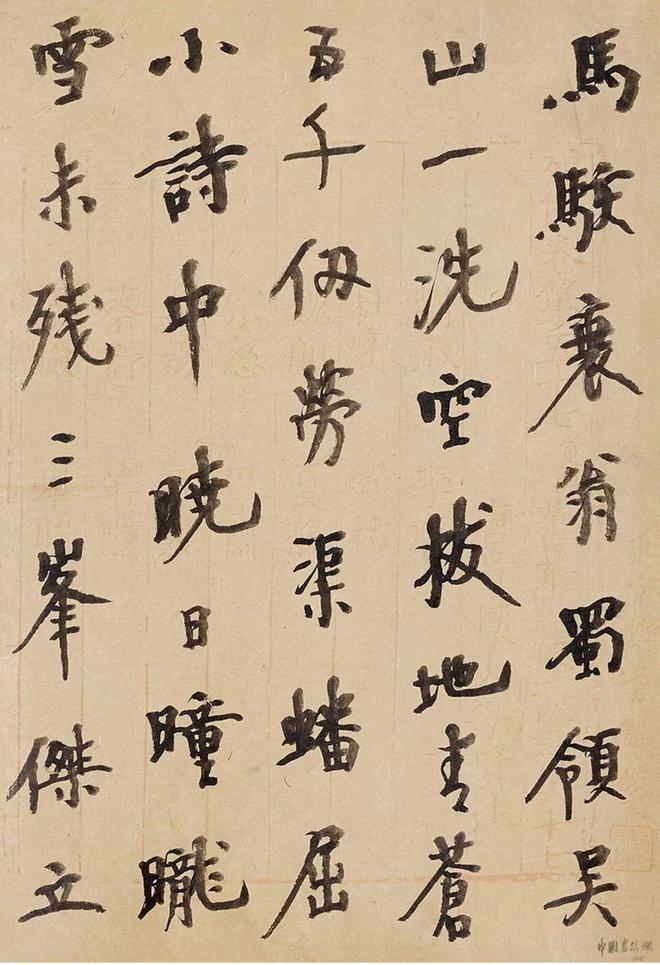 馬馱衰翁蜀領吳
山一洗空拔地青蒼
五千仞勞渠蟠屈
小詩中曉日曈曨
雪未残三峯傑立
中國書法網